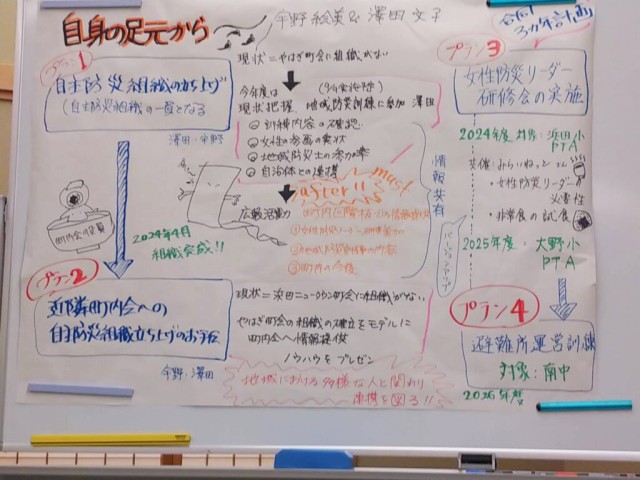 自身の足元から
宇野 絵美 & 澤田 文子
合同
3カ年計画
プラン1
自主防災組織の立ち上げ
(自主防災組織の一員となる
澤田・宇野
現状=やはぎ町会に組織がない
今年度は
現状把握 地域防災訓練に参加 澤田
① 訓練内容の確認
② 女性の参画の実状
③ 地域防災士の参加率
④ 自治体との連携
情報共有
after!!
must
広報活動
町内会役員
2024年4月
組織会成!!
プラン2
近隣町内会への
自主防災組織立ち上げのお手伝
宇野・澤田
現状=浜田ニュータウン町会に組織がない
やはぎ町会の組織の確立をモデルに
町内会へ情報提供
ノウハウをプレゼン
地域における多様な人と関わり
連携を図る!!
バージョンアップ
プラン3
女性防災リーダー
研修会の実施
2024年度 対象:浜田小
PTA
共催:みらいねっと
・女性防災リーダーの
必要性
・非常食の試食
2025年度:大野小
PTA
プラン4
避難所運営訓練
対象:南中
2026年度